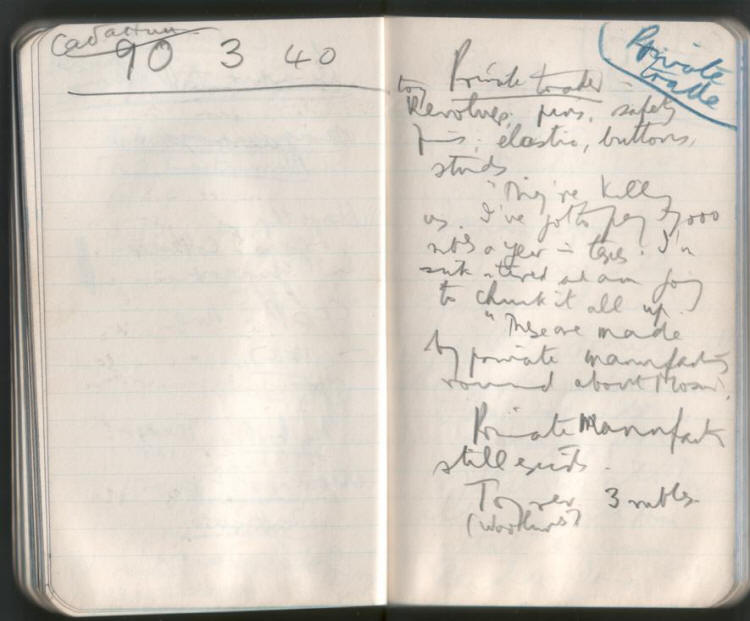 90 3 40
Private
trade
Private trader
toy
Revolver, pins, safety
pins, elastic, buttons,
studs
"They're killing
us. I've got to pay 3,000
rubles a year in taxes. I'm
sick & tired and am going
to chuck it all up.
"These are made
by private manufacturers
round about Moscow.
Private Manufacturers
still exists.
Toy rev 3 rubles